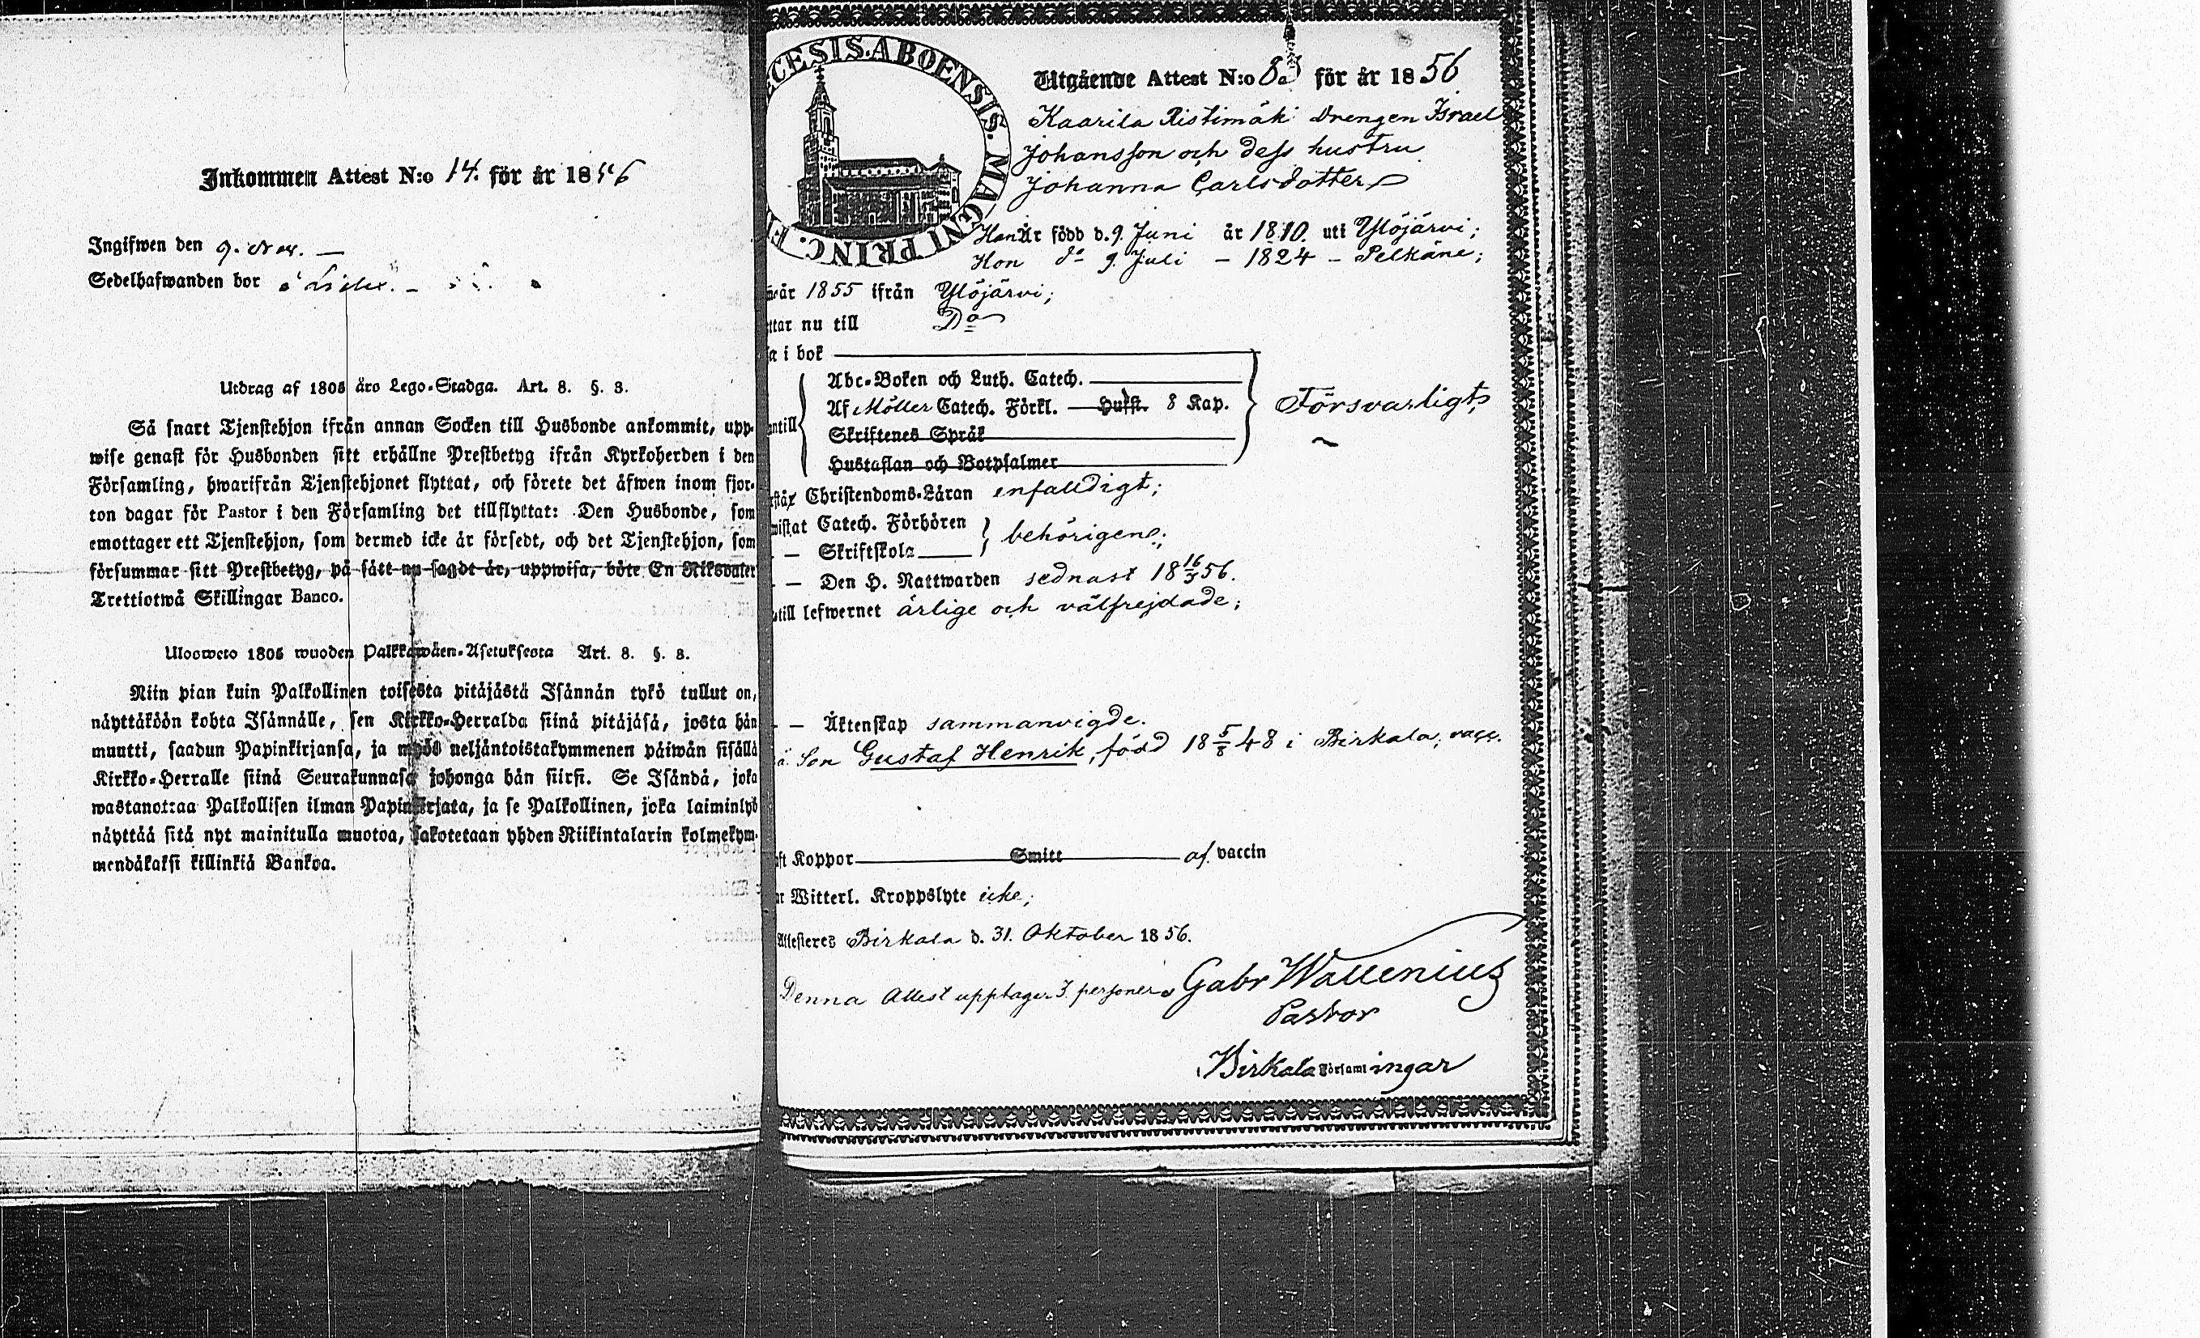 Inkommen Attest N:o 14. för år 1856
Ingifwen den 9. Nov. —
Sedelhafwanden bor
Utdrag af 1805 års Lego-Stadga. Art. 8. §. 3.
Så snart Tjenstehjon ifrån annan Socken till Husbonde ankommit, upp-
wise genast för Husbonden sitt erhållne Prestbetyg ifrån Kyrkoherden i den
Församling, hwarifrån Tjenstehjonet flyttat, och förete det äfwen inom fjor-
ton dagar för Pastor i den Församling det tillflyttat: Den Husbonde, som
emottager ett Tjenstehjon, som dermed icke är försedt, och det Tjenstehjon, som
försummar sitt Prestbetyg, på sätt nu sagdt är, uppwisa, böte En Riksdaler
Trettiotwå Skillingar Banco.
Ulosweto 1805 wuoden Palkkawäen-Asetuksesta Art. 8. §. 3.
Niin pian kuin Palkollinen toisesta pitäjästä Isännän tykö tullut on,
näyttäköön kohta Isännälle, sen Kirkko-Herralda siinä pitäjäsä, josta hän
muutti, saadun Papinkirjansa, ja myös neljäntoistakymmenen päiwän sisällä
Kirkko-Herralle siinä Seurakunnasa johonga hän siirsi. Se Isändä, joka
wastanottaa Palkollisen ilman Papinkirjata, ja se Palkollinen, joka laiminlyö
näyttää sitä nyt mainitulla muotoa, sakotetaan yhden Riikintalarin kolmekym-
mendäkaksi killinkiä Bankoa.
CESIS. ABOENSIS. MAGNI PRINC. F
Utgående Attest N:o för år 1856
Kaarila Ristimäki Drengen Israel
Johansson och dess hustru
Johanna Carlsdotter
Han Är född d. 9. Juni år 1810. uti Ylöjärvi;
Hon do 9. Juli – 1824 – Pelkäne;
år 1855 ifrån Ylöjärvi;
ttar nu till Do
a i bok
Abc-Boken och Luth. Catech.
Af Möller Catech. Förkl. — Husst. 8 Kap.
Försvarligt,
antill
Skriftenes Språk
Hustaflan och Botpsalmer
Christendoms-Läran enfaldigt;
wistat Catech. Förhören
behörigen;
– – Skriftskola
– – Den H. Nattwarden sednast 18 16/3 56.
till lefwernet ärlige och välfrejdade;
– – Äktenskap sammanvigde.
Son Gustaf Henrik, född 18 5/8 48 i Birkala, vacc.
ft Koppor — Smitt — af vaccin
Witterl. Kroppslyte icke;
Attesteres Birkala d. 31. Oktober 1856.
Denna Attest upptager 3. personer. Gabr Wallenius
Pastor
Birkala Församl ingar